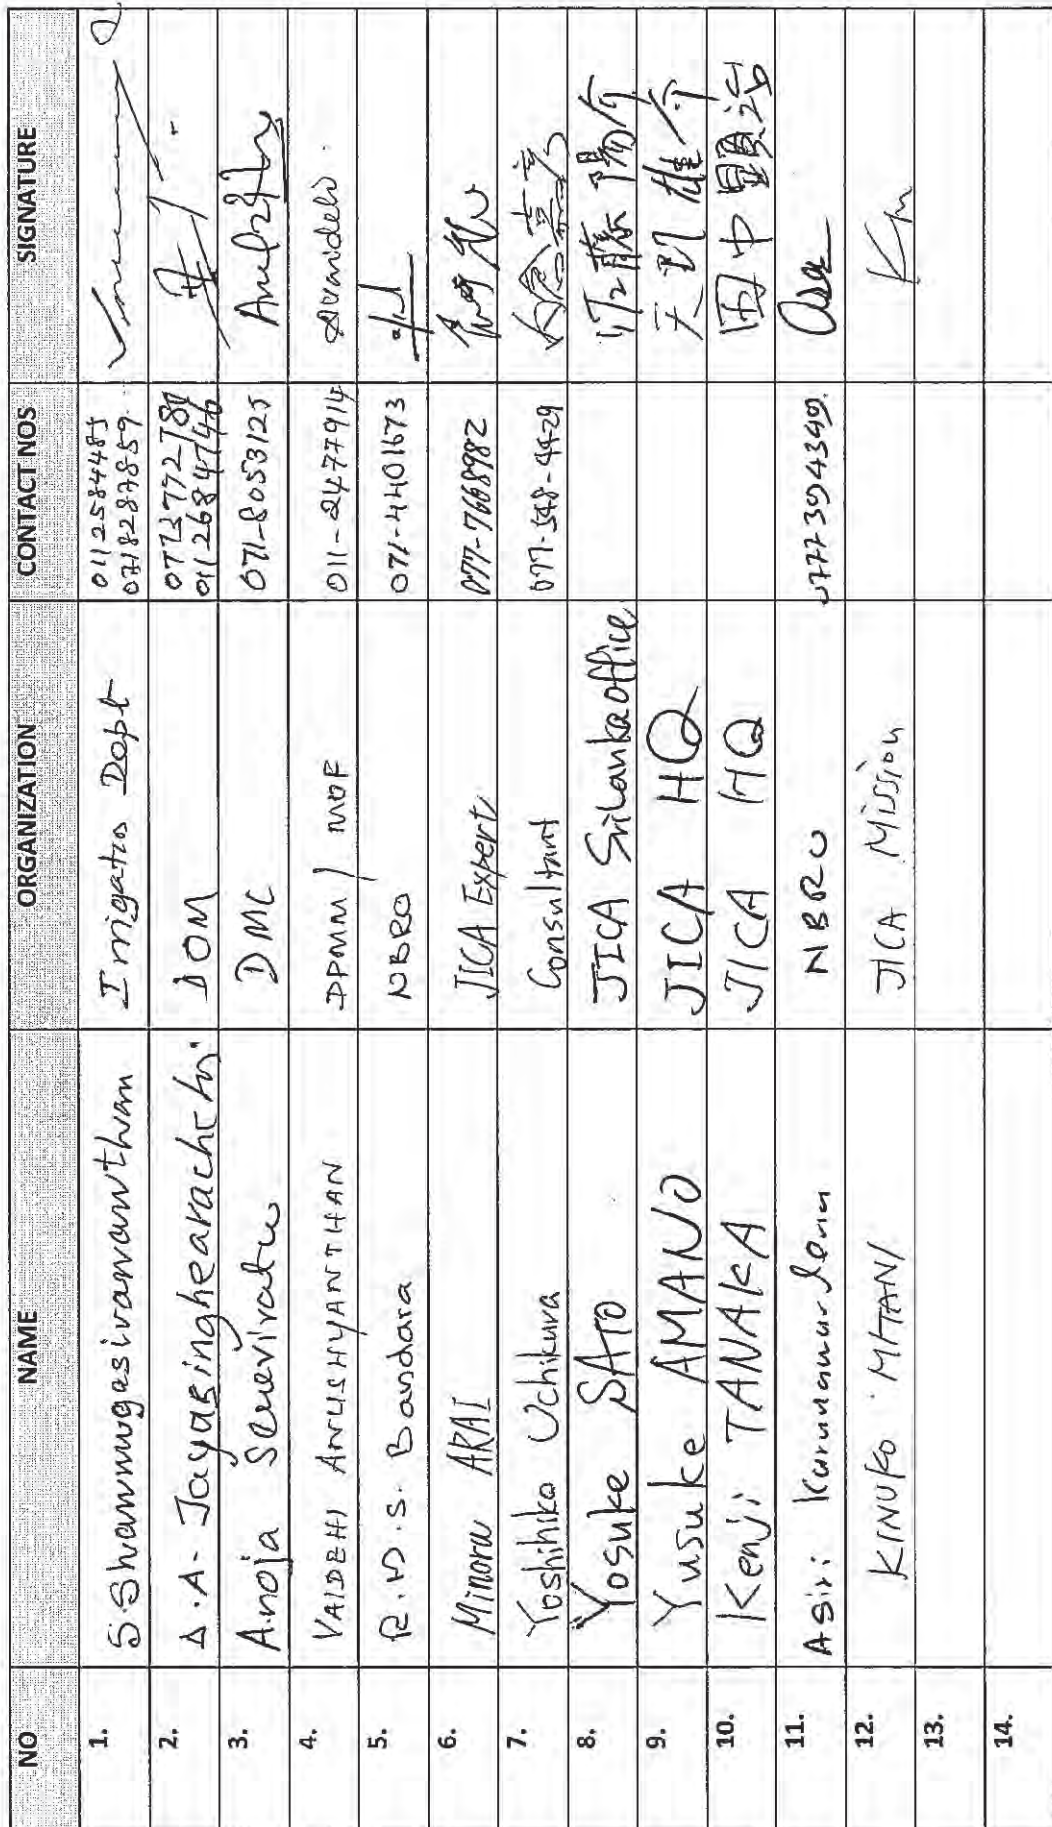 NO NAME ORGANIZATION CONTACT NOS SIGNATURE
1. S. Shanmugasivananthan Irrigation Dept 0112584485
0718287859
2. D.A. Jayasinghearachchi DOM 0773772780
0112684746
3. Anoja Seneviratne DMC 071-8053125
4. VAIDEHI ANUSHYANTHAN DPMM / MOF 011-2477914
5. R.M.S. Bandara NBRO 071-4401673
6. Minoru ARAI JICA Expert 077-7668982
7. Yoshihiko Uchikura Consultant 077-548-4429
8. Yosuke SATO JICA Srilanka office 佐藤陽介
9. Yusuke AMANO JICA HQ 天野雄介
10. Kenji TANAKA JICA HQ 田中顕治
11. Asiri Karunawardena NBRO 0777394399
12. KINUKO MITANI JICA Mission
13.
14.